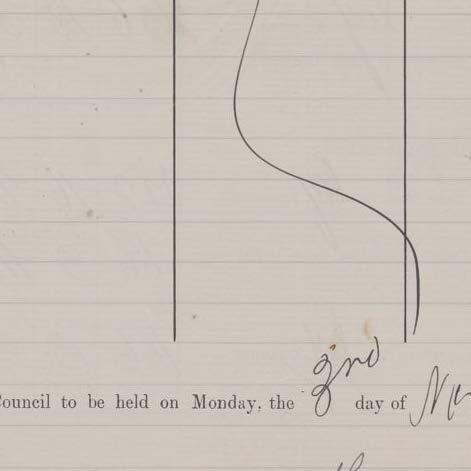 Council to be held on Monday, the 3rd day of